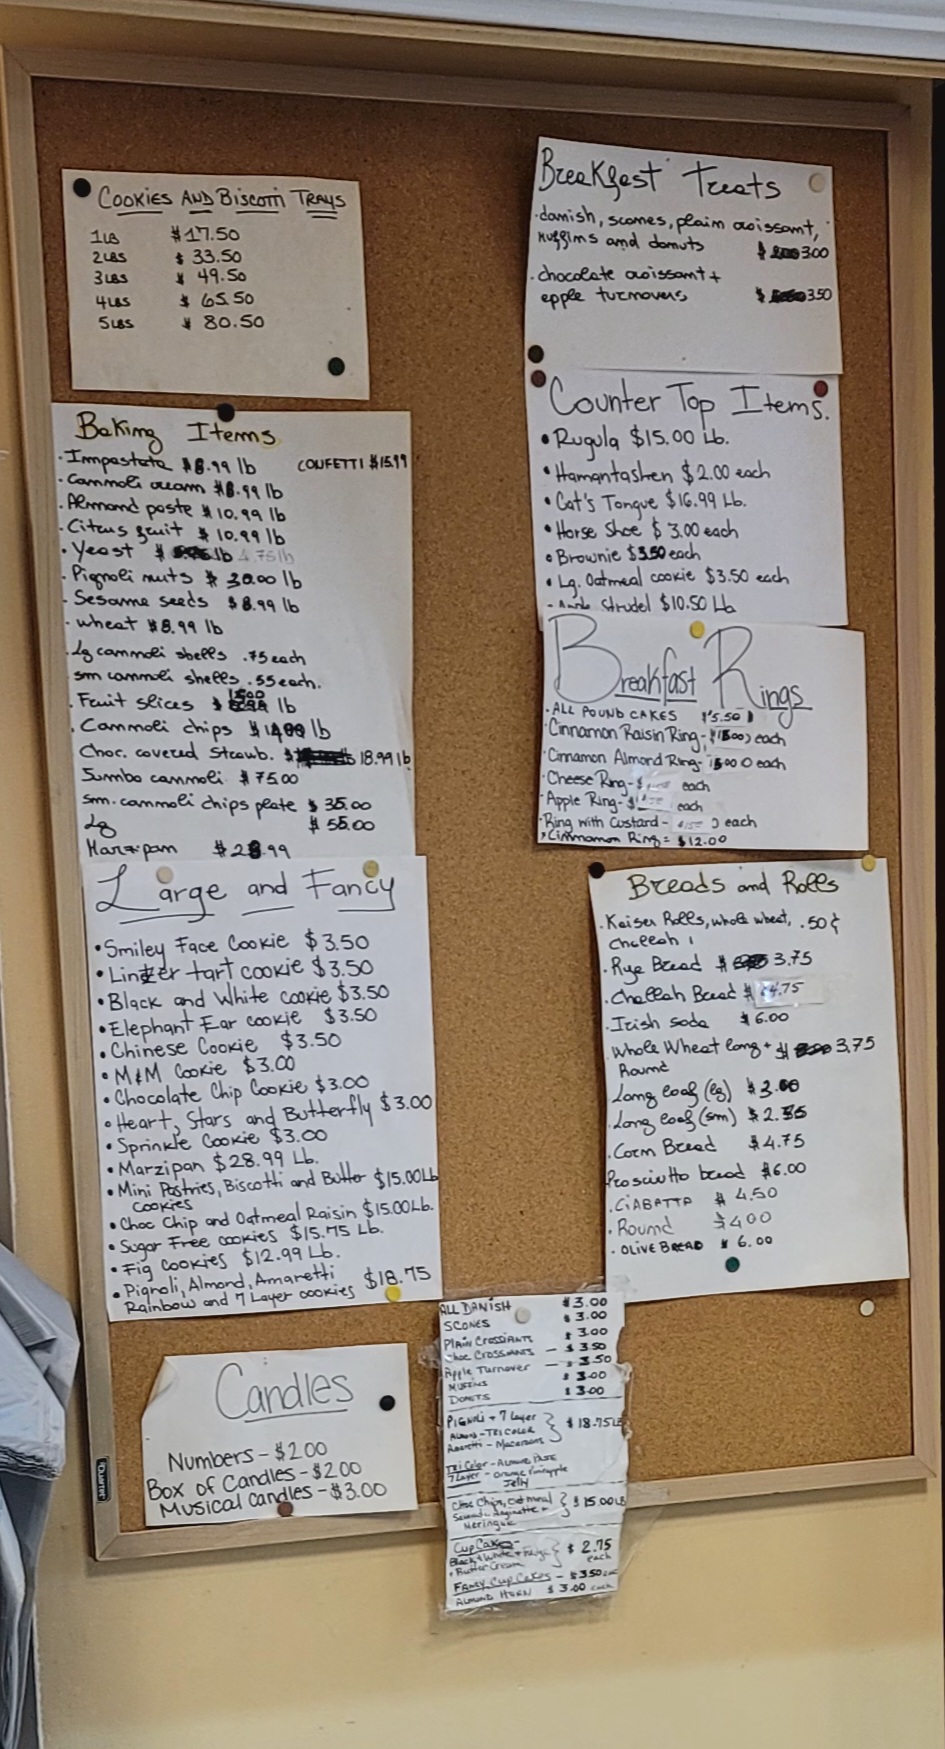 COOKIES AND BISCOTTI TRAYS
1LB $17.50
2LBS $33.50
3LBS $49.50
4LBS $65.50
5LBS $80.50
Baking Items
Impastata $8.99 lb CONFETTI $15.99
Cannoli cream $8.99 lb
Almond paste $10.99 lb
Citrus fruit $10.99 lb
Yeast $ lb 4.75 lb
Pignoli nuts $30.00 lb
Sesame seeds $8.99 lb
wheat $8.99 lb
Lg cannoli shells .75 each
sm cannoli shells .55 each.
Fruit slices $ 15.00 lb
Cannoli chips $ lb
Choc. covered Strawb. $ 18.99 lb
Jumbo cannoli $75.00
sm. cannoli chips plate $35.00
Lg $55.00
Marzipan $28.99
Large and Fancy
• Smiley Face Cookie $3.50
• Linzer tart cookie $3.50
• Black and White cookie $3.50
• Elephant Ear cookie $3.50
• Chinese Cookie $3.50
• M&M Cookie $3.00
• Chocolate Chip Cookie $3.00
• Heart, Stars and Butterfly $3.00
• Sprinkle Cookie $3.00
• Marzipan $28.99 Lb.
• Mini Pastries, Biscotti and Butter $15.00 Lb
cookies
• Choc Chip and Oatmeal Raisin $15.00 Lb.
• Sugar Free cookies $15.75 Lb.
• Fig cookies $12.99 Lb.
• Pignoli, Almond, Amaretti
Rainbow and 7 Layer cookies $18.75
Candles
Numbers - $2.00
Box of Candles - $2.00
Musical candles - $3.00
QUARTET
Breakfast Treats
. danish, scones, plain croissant,
muffins and donuts $ 3.00
. chocolate croissant +
apple turnovers $ 3.50
Counter Top Items.
• Rugula $15.00 Lb.
• Hamantashen $2.00 each
• Cat's Tongue $16.99 Lb.
• Horse Shoe $3.00 each
• Brownie $3.50 each
• Lg. Oatmeal cookie $3.50 each
Strudel $10.50 Lb
Breakfast Rings
• ALL POUND CAKES $5.50
• Cinnamon Raisin Ring - each
• Cinnamon Almond Ring - each
• Cheese Ring - $ each
• Apple Ring - $ each
• Ring with Custard - each
• Cinnamon Ring = $12.00
Breads and Rolls
. Kaiser Rolls, whole wheat, .50¢
challah
. Rye Bread $ 3.75
. Challah Bread $ 4.75
. Irish soda $6.00
. Whole Wheat long + $ 3.75
Round
Long loaf (lg) $
Long loaf (sm) $
. Corn Bread $4.75
Prosciutto bread $6.00
. CIABATTA $4.50
. Round $4.00
. OLIVE BREAD $6.00
ALL DANISH $3.00
SCONES $3.00
PLAIN CROSSIANTS $3.00
CHOC CROSSIANTS - $3.50
Apple Turnover - $3.50
MUFFINS $3.00
DONUTS $3.00
PIGNOLI + 7 Layer
ALMOND - TRI COLOR $18.75 LB
Amaretti - Macaroons
TRI Color - Almond Paste
7 Layer - Orange Pineapple
Jelly
Choc Chips, Oatmeal
$15.00 LB
Meringue
Cup Cake
Black + White + Fudge $2.75
+ Butter Cream each
FANCY CUP CAKES - $3.50
ALMOND HORN $3.00 each